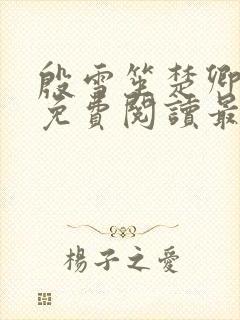 殷雪笙楚卿
免費閱讀最
楊子之愛